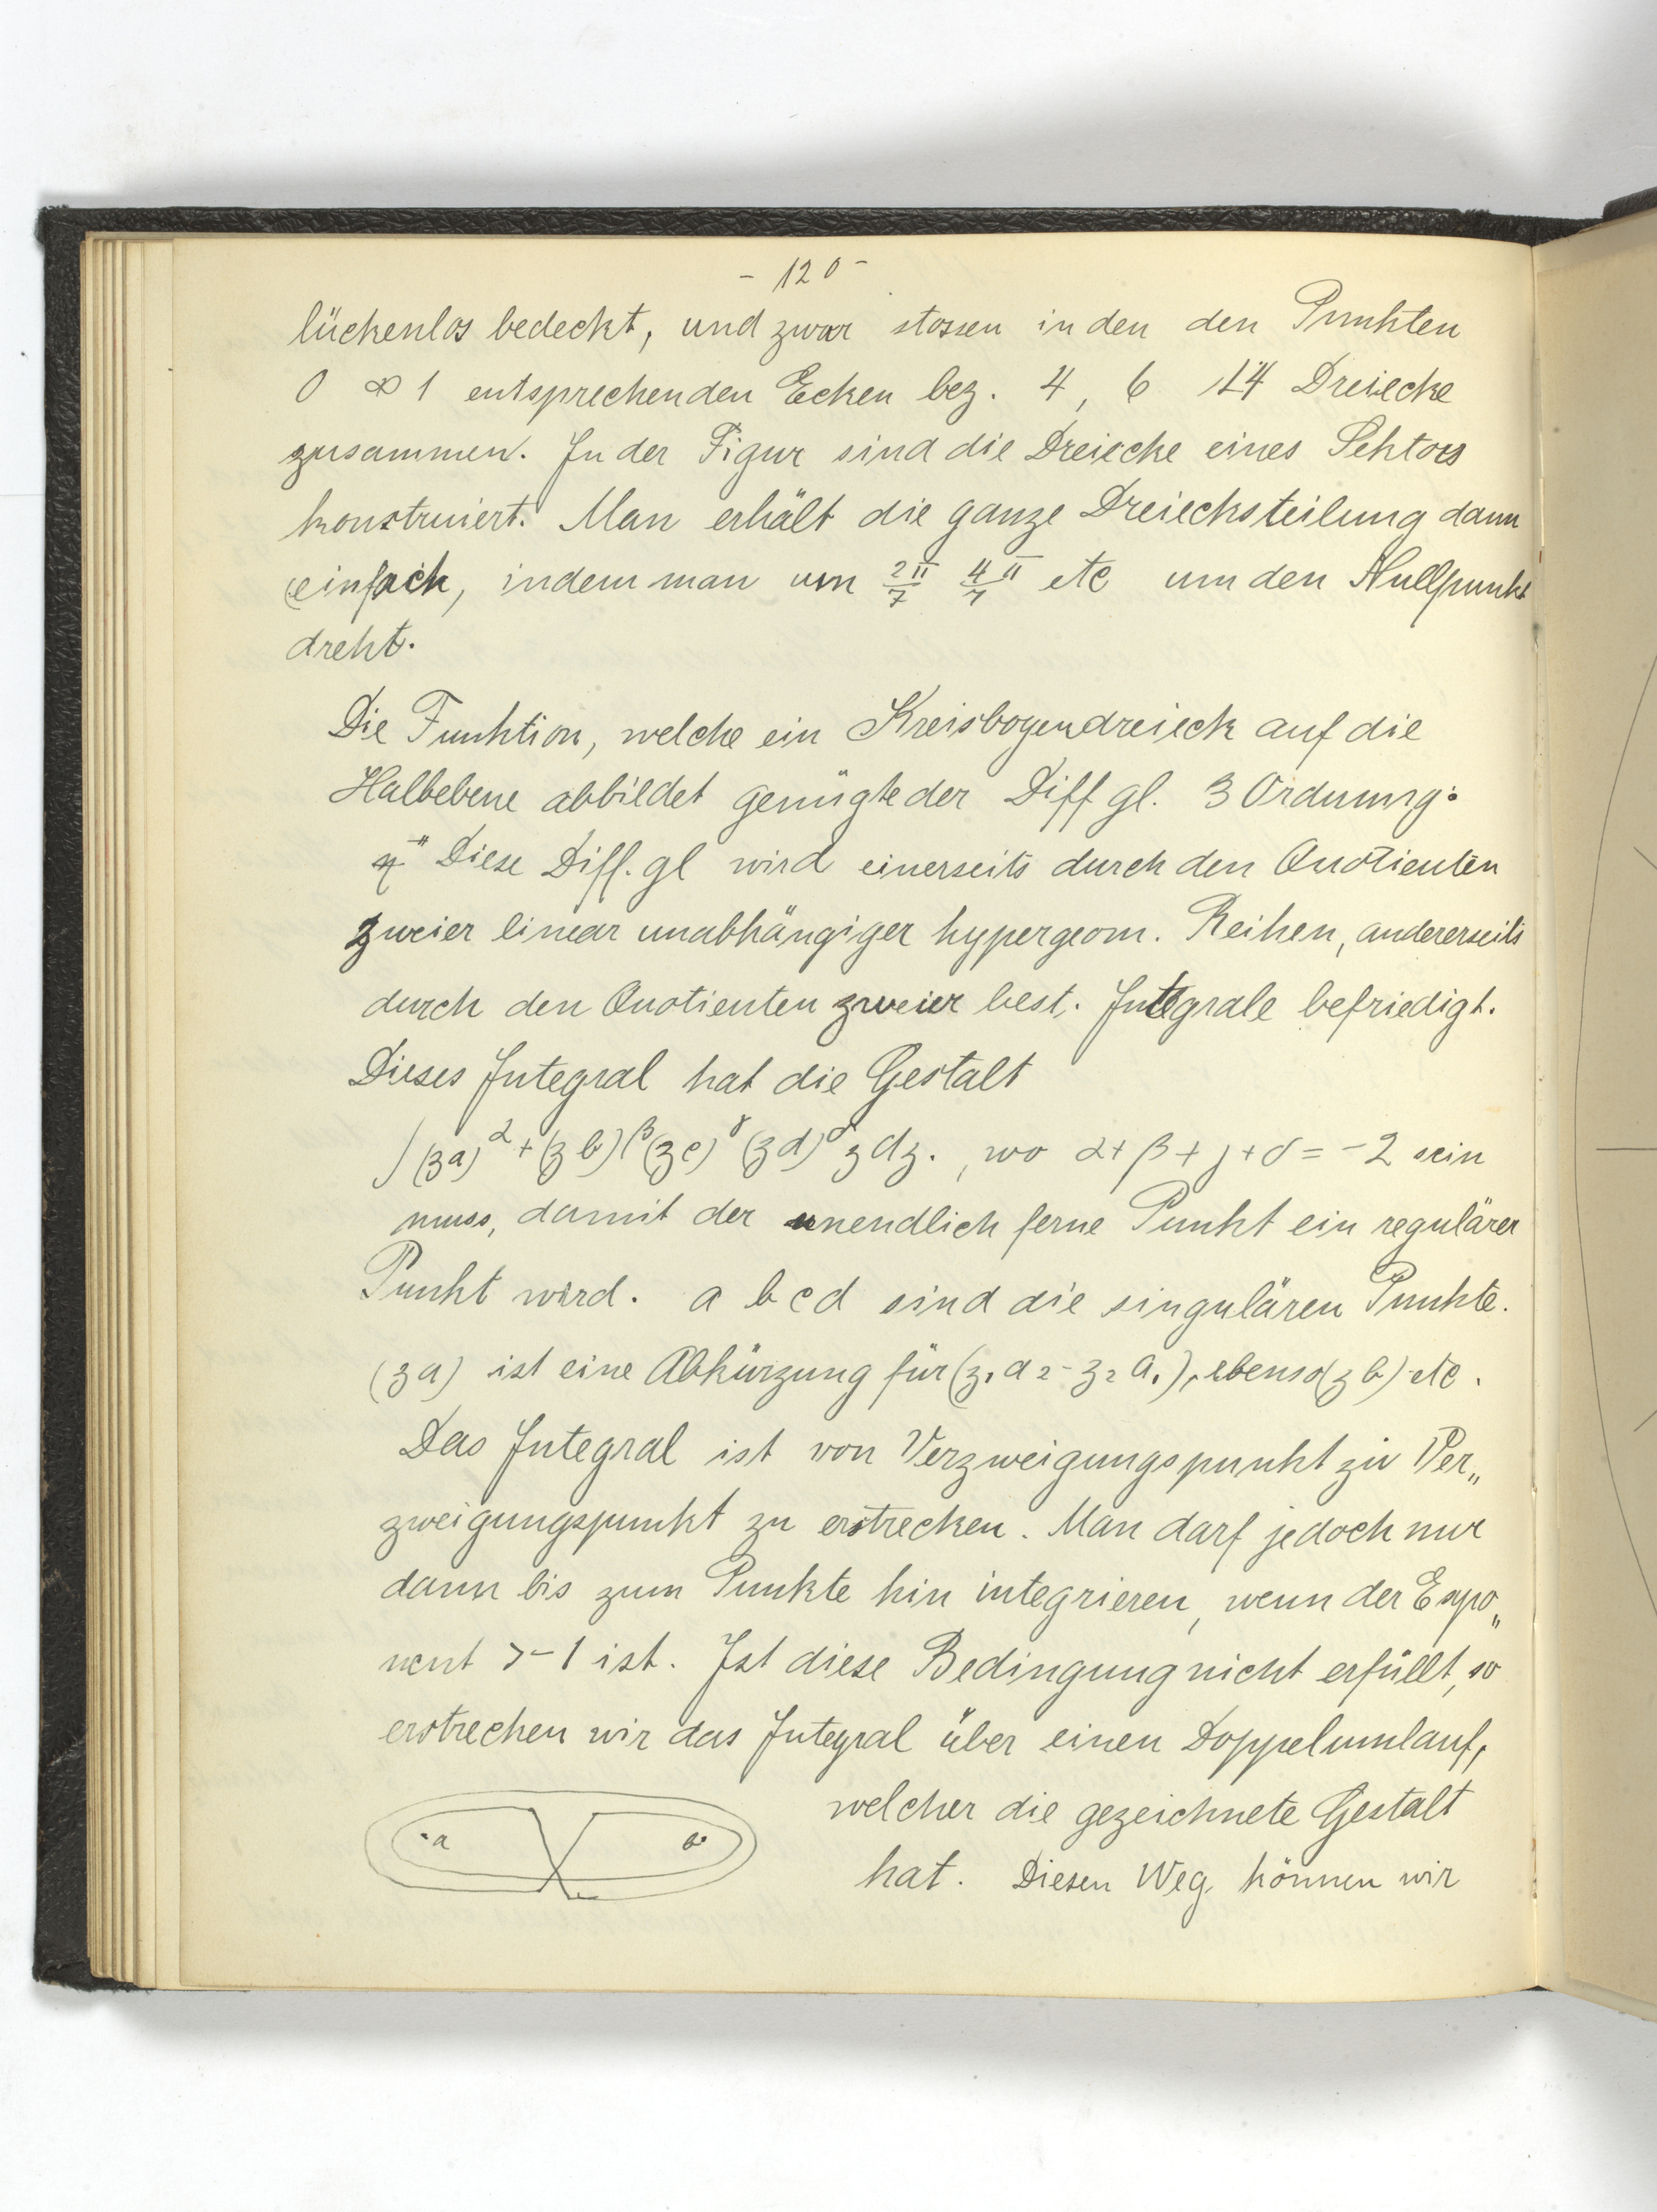 - 120 -
lückenlos bedeckt, und zwar stossen in den den Punkten
0 ∞ 1 entsprechenden Ecken bez. 4, 6 14 Dreiecke
zusammen. In der Figur sind die Dreiecke eines Sektors
konstruiert. Man erhält die ganze Dreiecksteilung dann
einfach, indem man um 2π/7 4π/7 etc um den Nullpunkt
dreht.
Die Funktion, welche ein Kreisbogendreieck auf die
Halbebene abbildet genügte der Diff gl. 3 Ordnung:
Diese Diff. gl wird einerseits durch den Quotienten
zweier linear unabhängiger hypergeom. Reihen, andererseits
durch den Quotienten zweier best. Integrale befriedigt.
Dieses Integral hat die Gestalt
∫(za)^α + (zb)^β (zc)^γ (zd)^δ z dz. , wo α+β+γ+δ = -2 sein
muss, damit der unendlich ferne Punkt ein regulärer
Punkt wird. a b c d sind die singulären Punkte.
(za) ist eine Abkürzung für (z₁a₂ - z₂a₁), ebenso (zb) etc.
Das Integral ist von Verzweigungspunkt zu Ver„
zweigungspunkt zu erstrecken. Man darf jedoch nur
dann bis zum Punkte hin integrieren, wenn der Expo„
nent > -1 ist. Ist diese Bedingung nicht erfüllt, so
erstrecken wir das Integral über einen Doppelumlauf,
welcher die gezeichnete Gestalt
a b
hat. Diesen Weg können wir